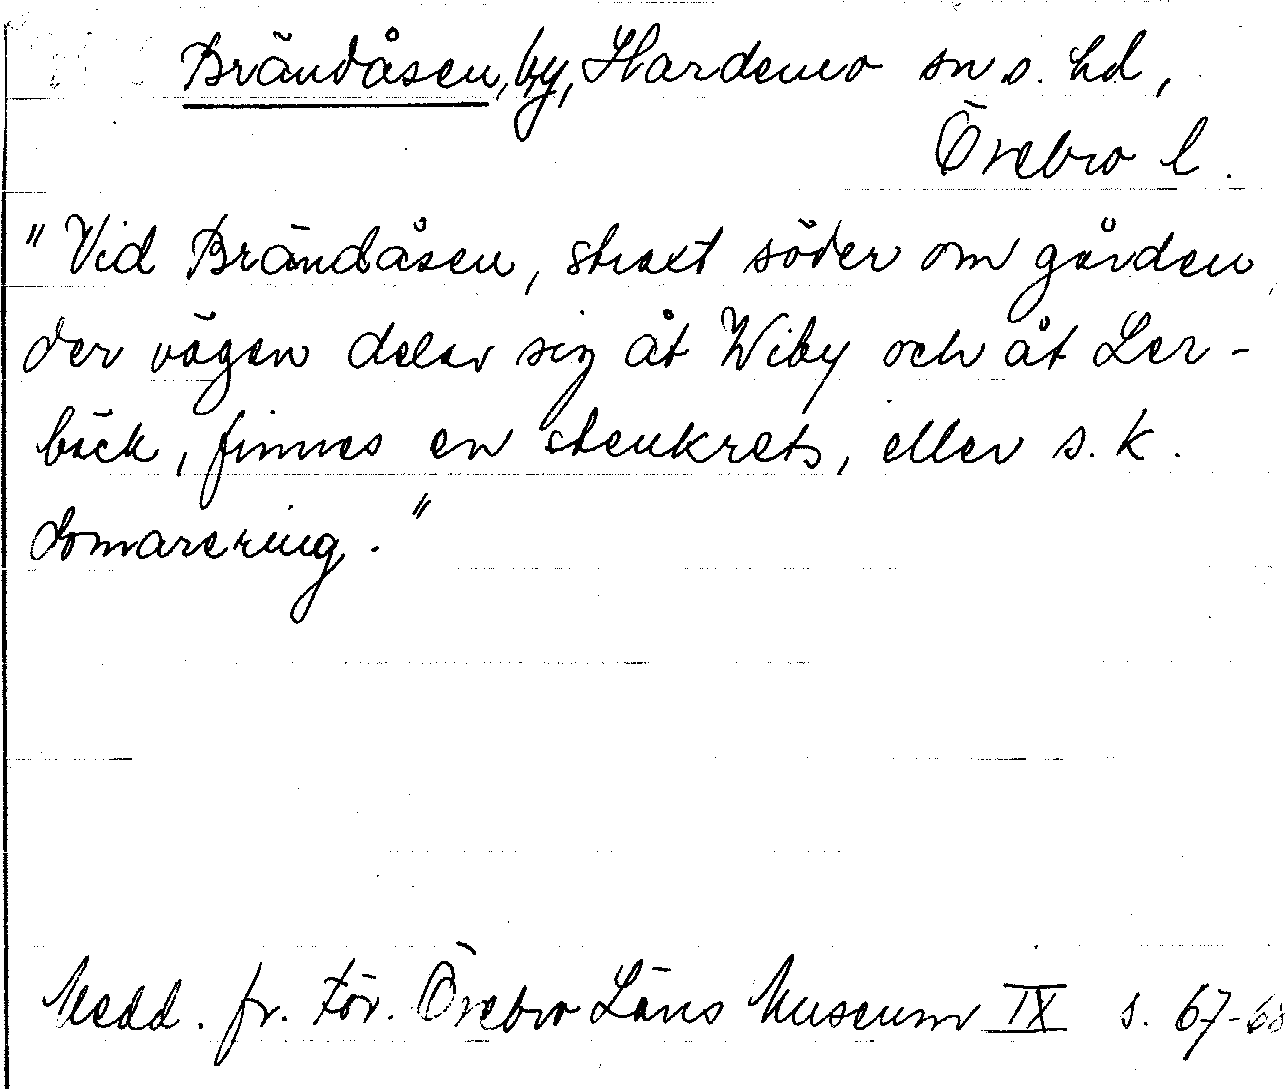 Brändåsen, by, Hardemo sn o. hd,
Örebro l.
"Vid Brändåsen, straxt söder om gården,
der vägen delar sig åt Wiby och åt Ler-
bäck, finnes en stenkrets, eller s. k.
domarering."
Medd. fr. För. Örebro Läns Museum IX s. 67-68